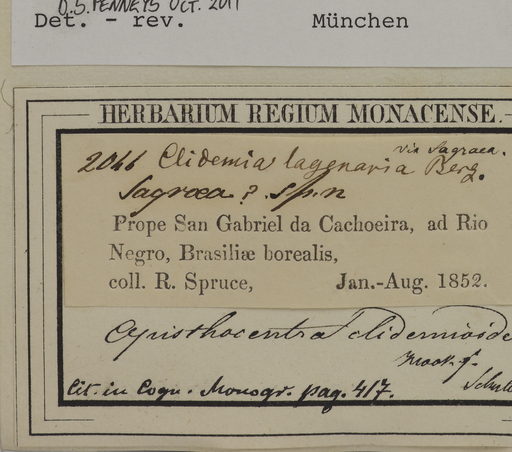 D.S. PENNEYS OCT. 2011
Det. - rev. München
HERBARIUM REGIUM MONACENSE.
vix Sagraea.
2046 Clidemia lagenaria Berg.
Sagraea? sp. n
Prope San Gabriel da Cachoeira, ad Rio
Negro, Brasiliæ borealis,
coll. R. Spruce, Jan.-Aug. 1852.
Opisthocentra clidemioide
Hook. f.
Cit. in Cogn. Monogr. pag. 417.